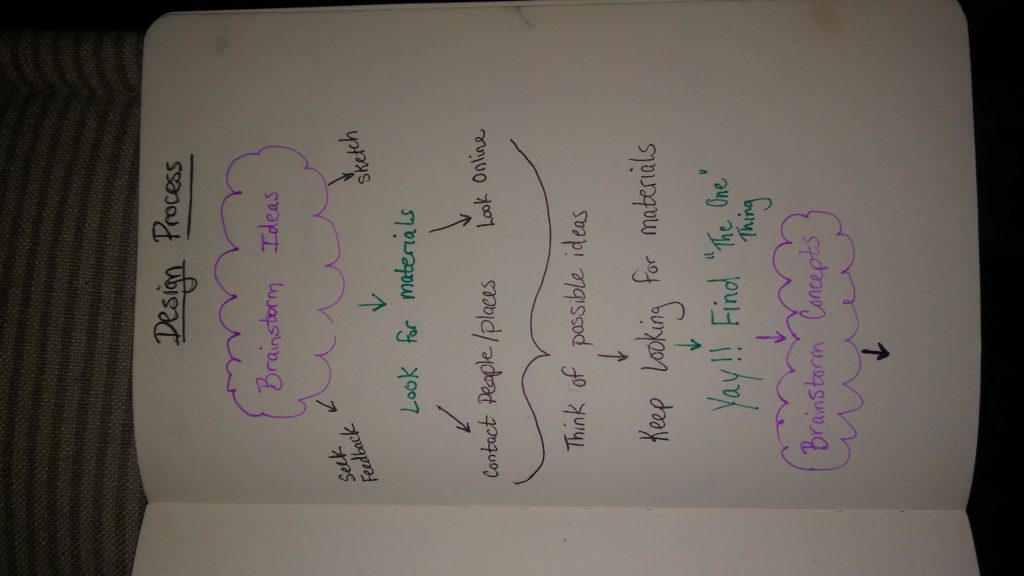 Design Process
Brainstorm Ideas
Seek
Feedback
Sketch
Look for materials
Contact People/places
Look Online
Think of possible ideas
Keep Looking for materials
Yay!! Find "The One"
Thing
Brainstorm Concepts